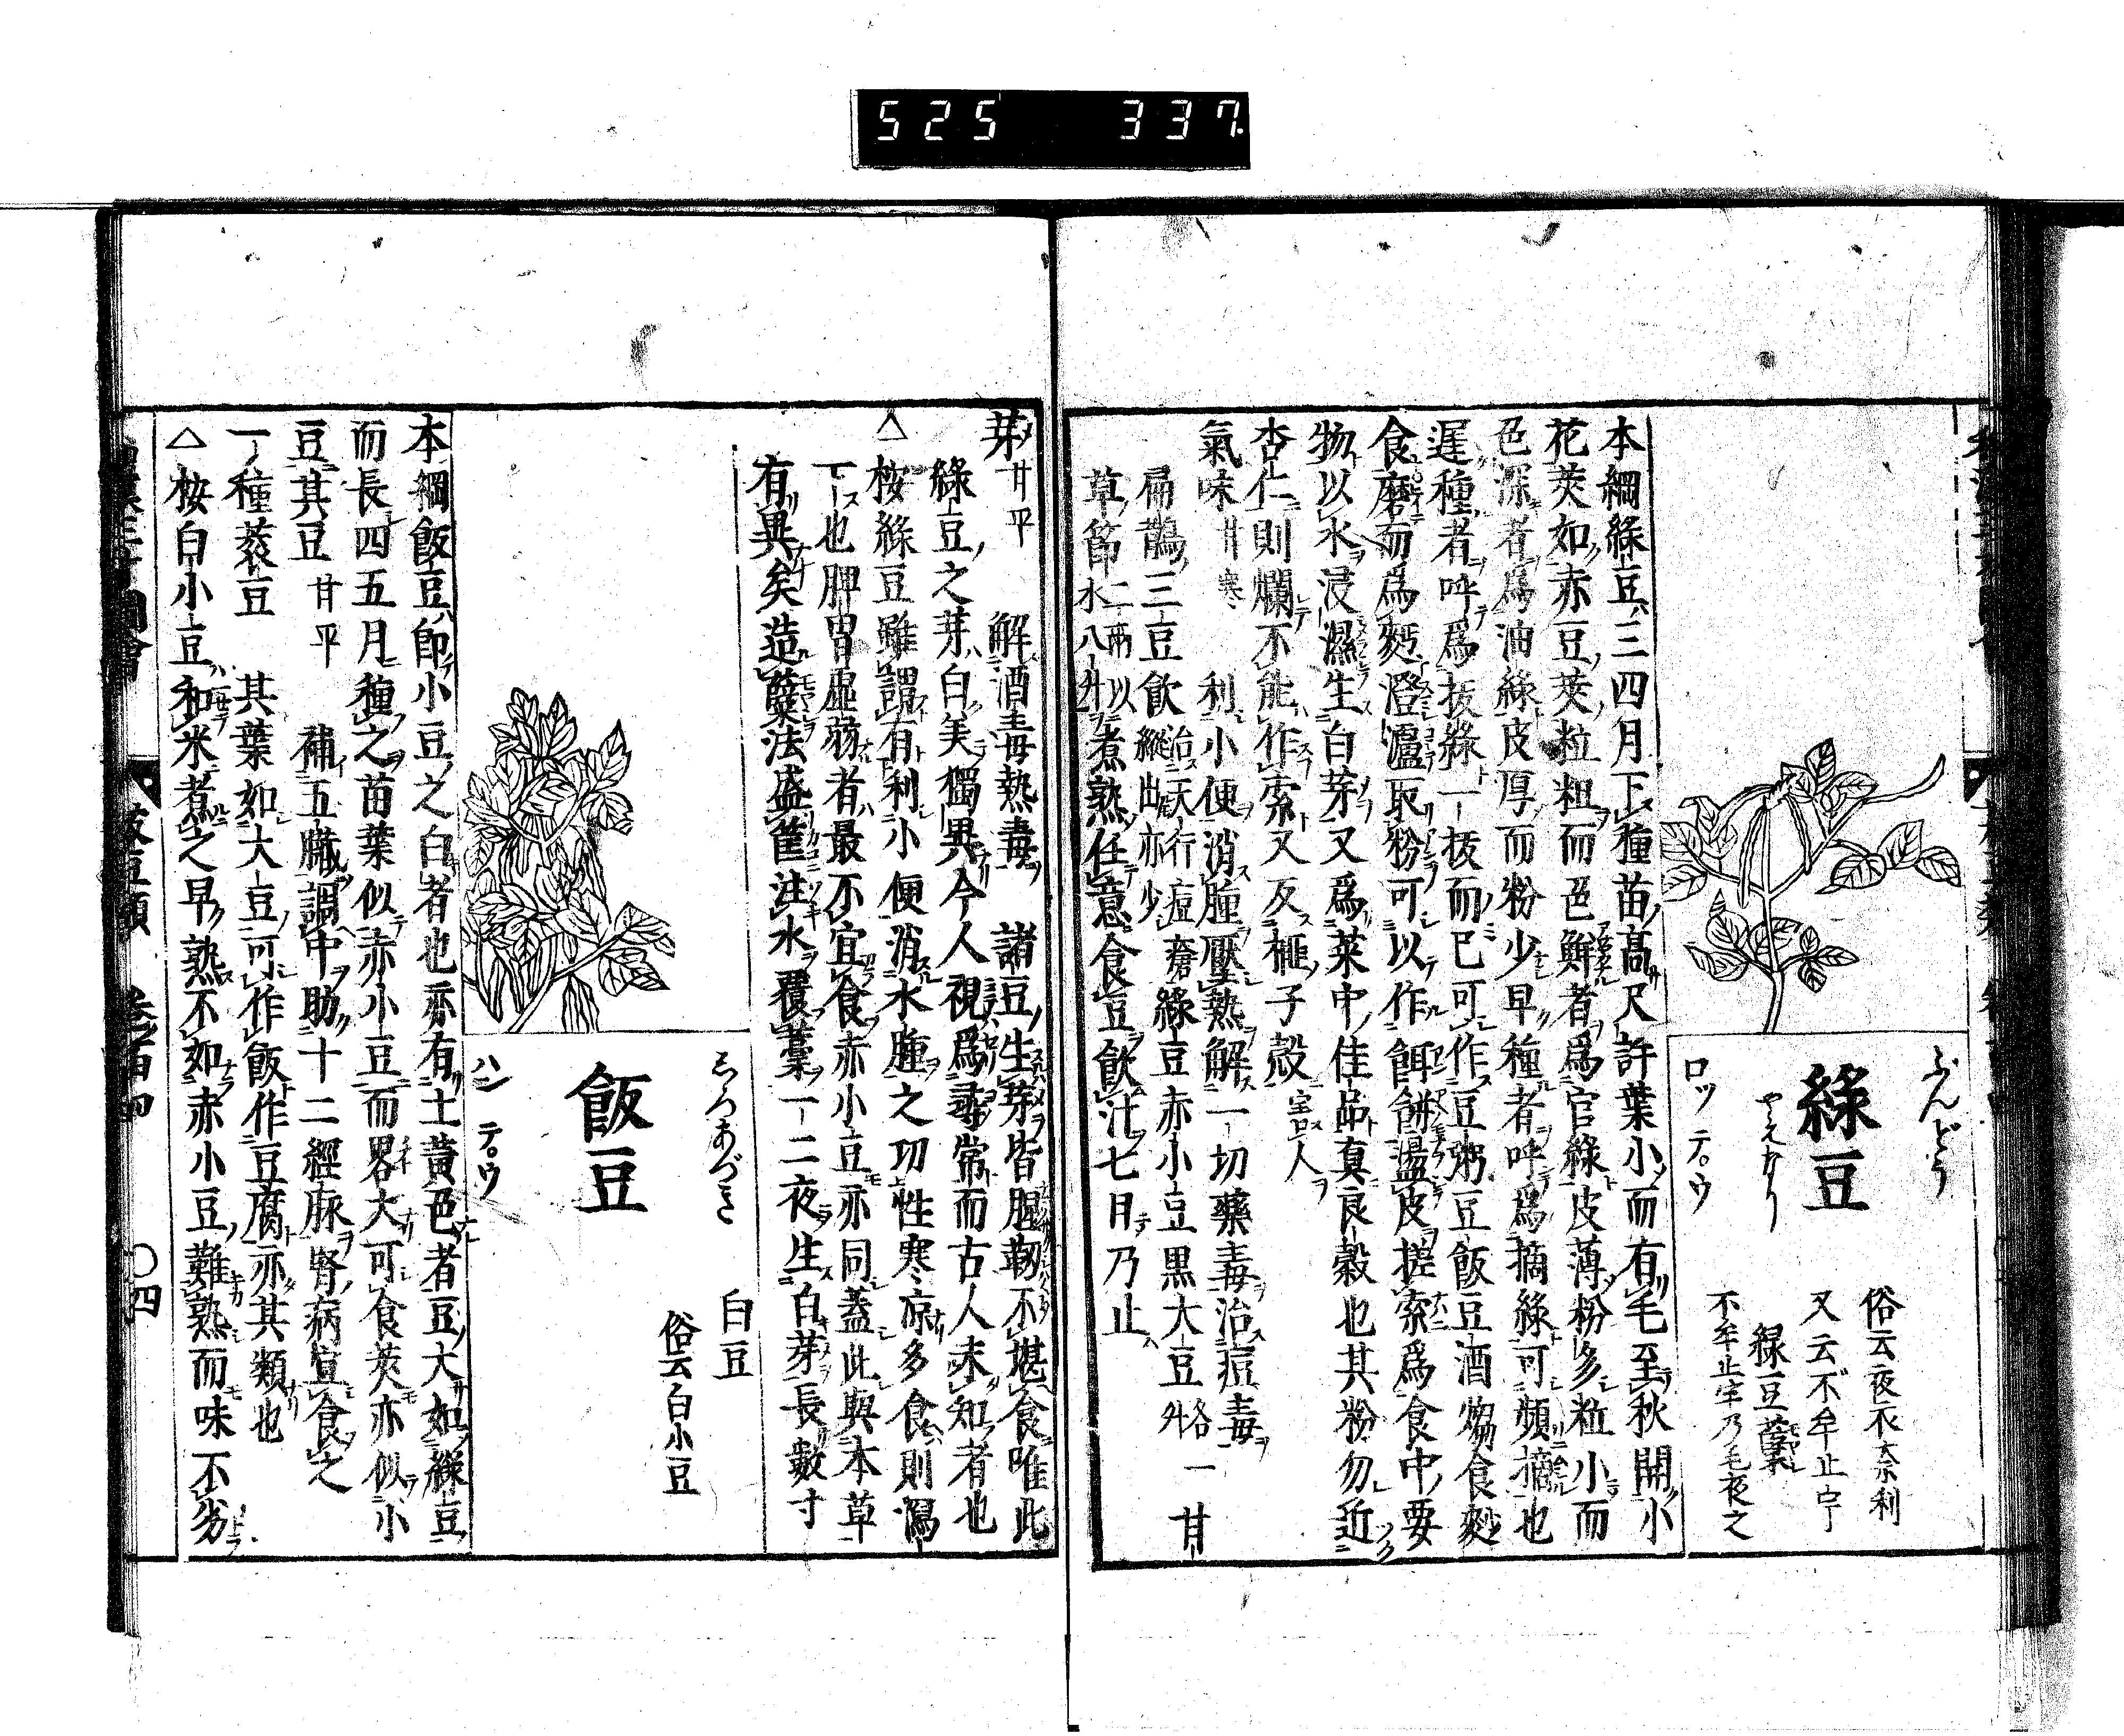 525 337
ぶんどう
綠豆
やえなり
ロッテ゜ウ
俗云夜衣奈利
又云不牟止宇
綠豆
不牟止宇乃毛夜之
本綱綠豆三四月下種苗高尺許葉小而有毛至秋開小
花莢如赤豆莢粒粗而色鮮者爲官綠皮薄粉多粒小而
色深者爲油綠皮厚而粉少早種者呼爲摘綠可頻摘也
遲種者呼爲拔綠一拔而已可作豆粥豆飯豆酒煼食麨
食磨而爲麪澄濾取粉可以作餌餅盪皮搓索爲食中要
物以水浸濕生白芽又爲菜中佳品真良穀也其粉勿近
杏仁則爛不能作索又反榧子殼害人
氣味甘寒 利小便消腫壓熱解一切藥毒治痘毒
扁鵲三豆飲治天行痘瘡縱出亦少綠豆赤小豆黒大豆各一升甘
草節二兩以水八升煮熟任意食豆飲汁七日乃止
芽甘平 解酒毒熱毒 諸豆生芽皆腥韌不堪食唯此
綠豆之芽白美獨異今人視爲尋常而古人未知者也
△桉綠豆雖謂有利小便消水腫之功性寒凉多食則瀉
下也脾胃虛弱者最不宜食赤小豆亦同蓋此與本草
有異矣造蘖法盛筐注水覆藁一二夜生白芽長數寸
しろあづき
飯豆
ハンテ゜ウ
白豆
俗云白小豆
本綱飯豆卽小豆之白者也亦有土黃色者豆大如綠豆
而長四五月種之苗葉似赤小豆而畧大可食莢亦似小
豆其豆甘平 補五臟調中助十二經脉腎病宜食之
一種䝁豆 其葉如大豆可作飯作豆腐亦其類也
△桉白小豆和米煮之早熟不如赤小豆難熟而味不劣
菽豆類 卷百四 〇四